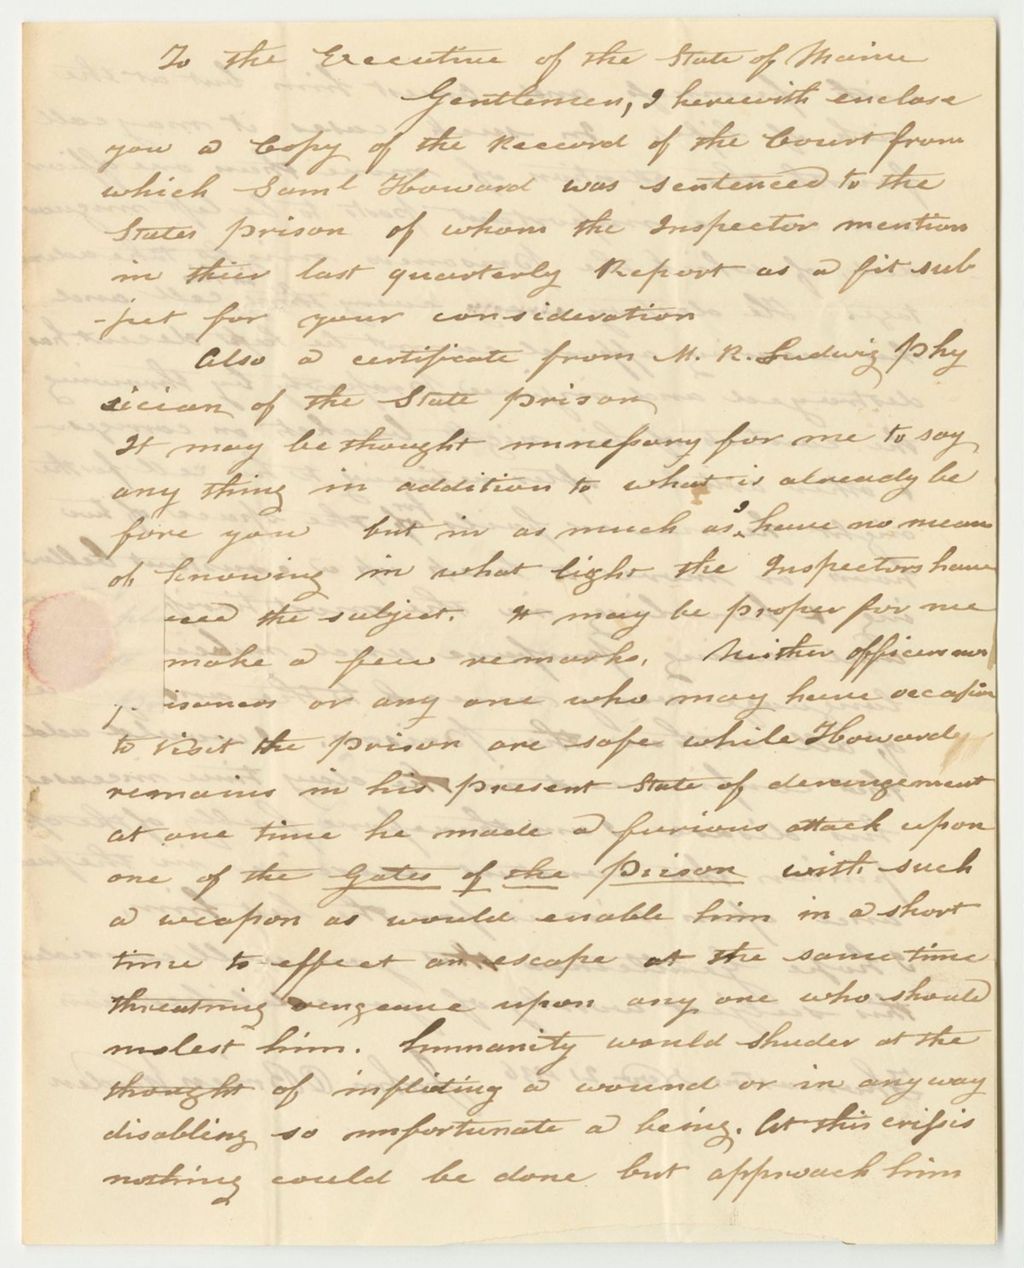 To the Executive of the State of Maine
Gentlemen, I herewith enclose
you a Copy of the Record of the Court from
which Saml Howard was sentenced to the
States prison of whom the Inspector mention
in thier last quarterly Report as a fit sub
-ject for your consideration
Also a certificate from M. R. Ludwig Phy
sician of the State prison
It may be thought unnessary for me to say
any thing in addition to what is already be
fore you but in as much as I have no mean
of knowing in what light the Inspectors have
the subject. It may be proper for me
make a few remarks. Neither officers
or any one who may have occasion
to visit the prison are safe while Howard
remains in his present State of derangement
at one time he made a furious attack upon
one of the Gates of the Prison with such
a weapon as would enable him in a short
time to effect an escape at the same time
threatning vengeance upon any one who should
molest him. humanity would shuder at the
thought of inflicting a wound or in any way
disabling so unfortunate a being. At this crisis
nothing could be done but approach him